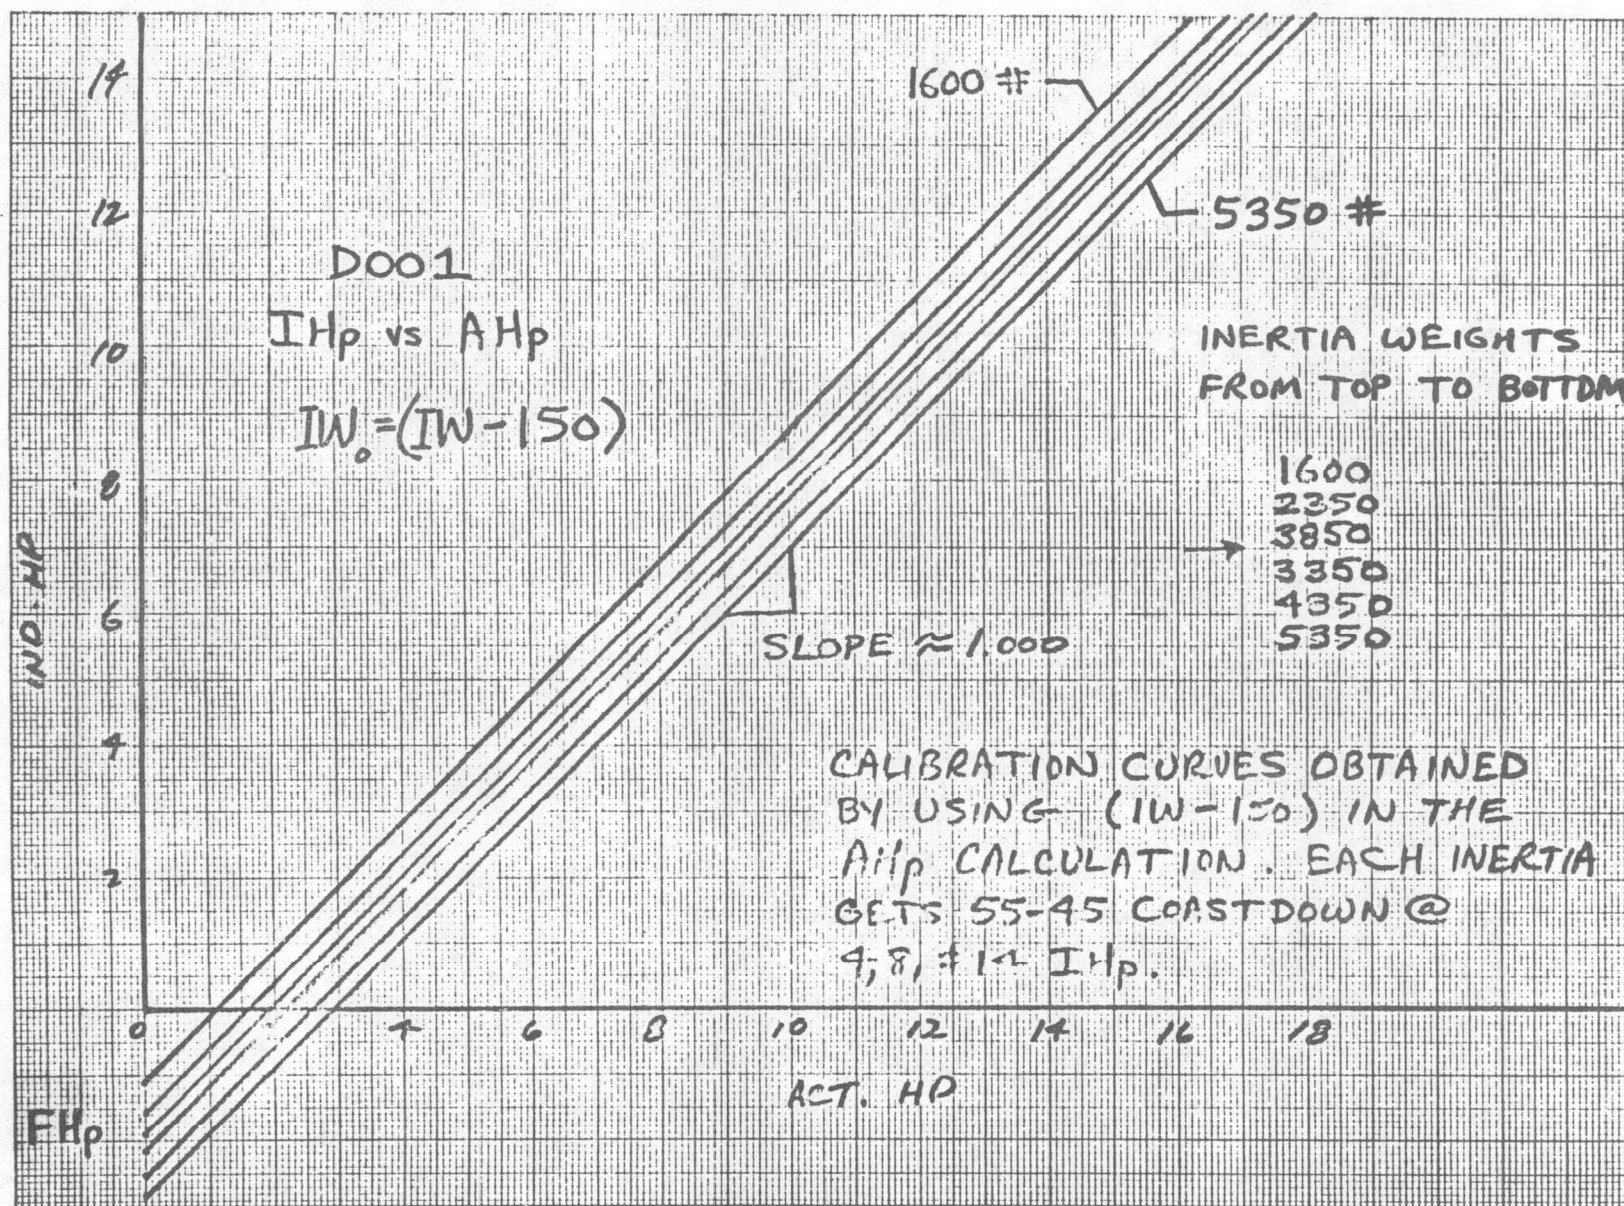 14
12
10
8
6
4
2
IND. HP
1600 #
5350 #
D001
IHp vs AHp
IW₀=(IW-150)
INERTIA WEIGHTS
FROM TOP TO BOTTOM
1600
2350
3850
3350
4350
5350
SLOPE ≈ 1.000
CALIBRATION CURVES OBTAINED
BY USING (IW-150) IN THE
AHp CALCULATION. EACH INERTIA
GETS 55-45 COASTDOWN @
4, 8, ‡ 14 IHp.
0 4 6 8 10 12 14 16 18
ACT. HP
FHp